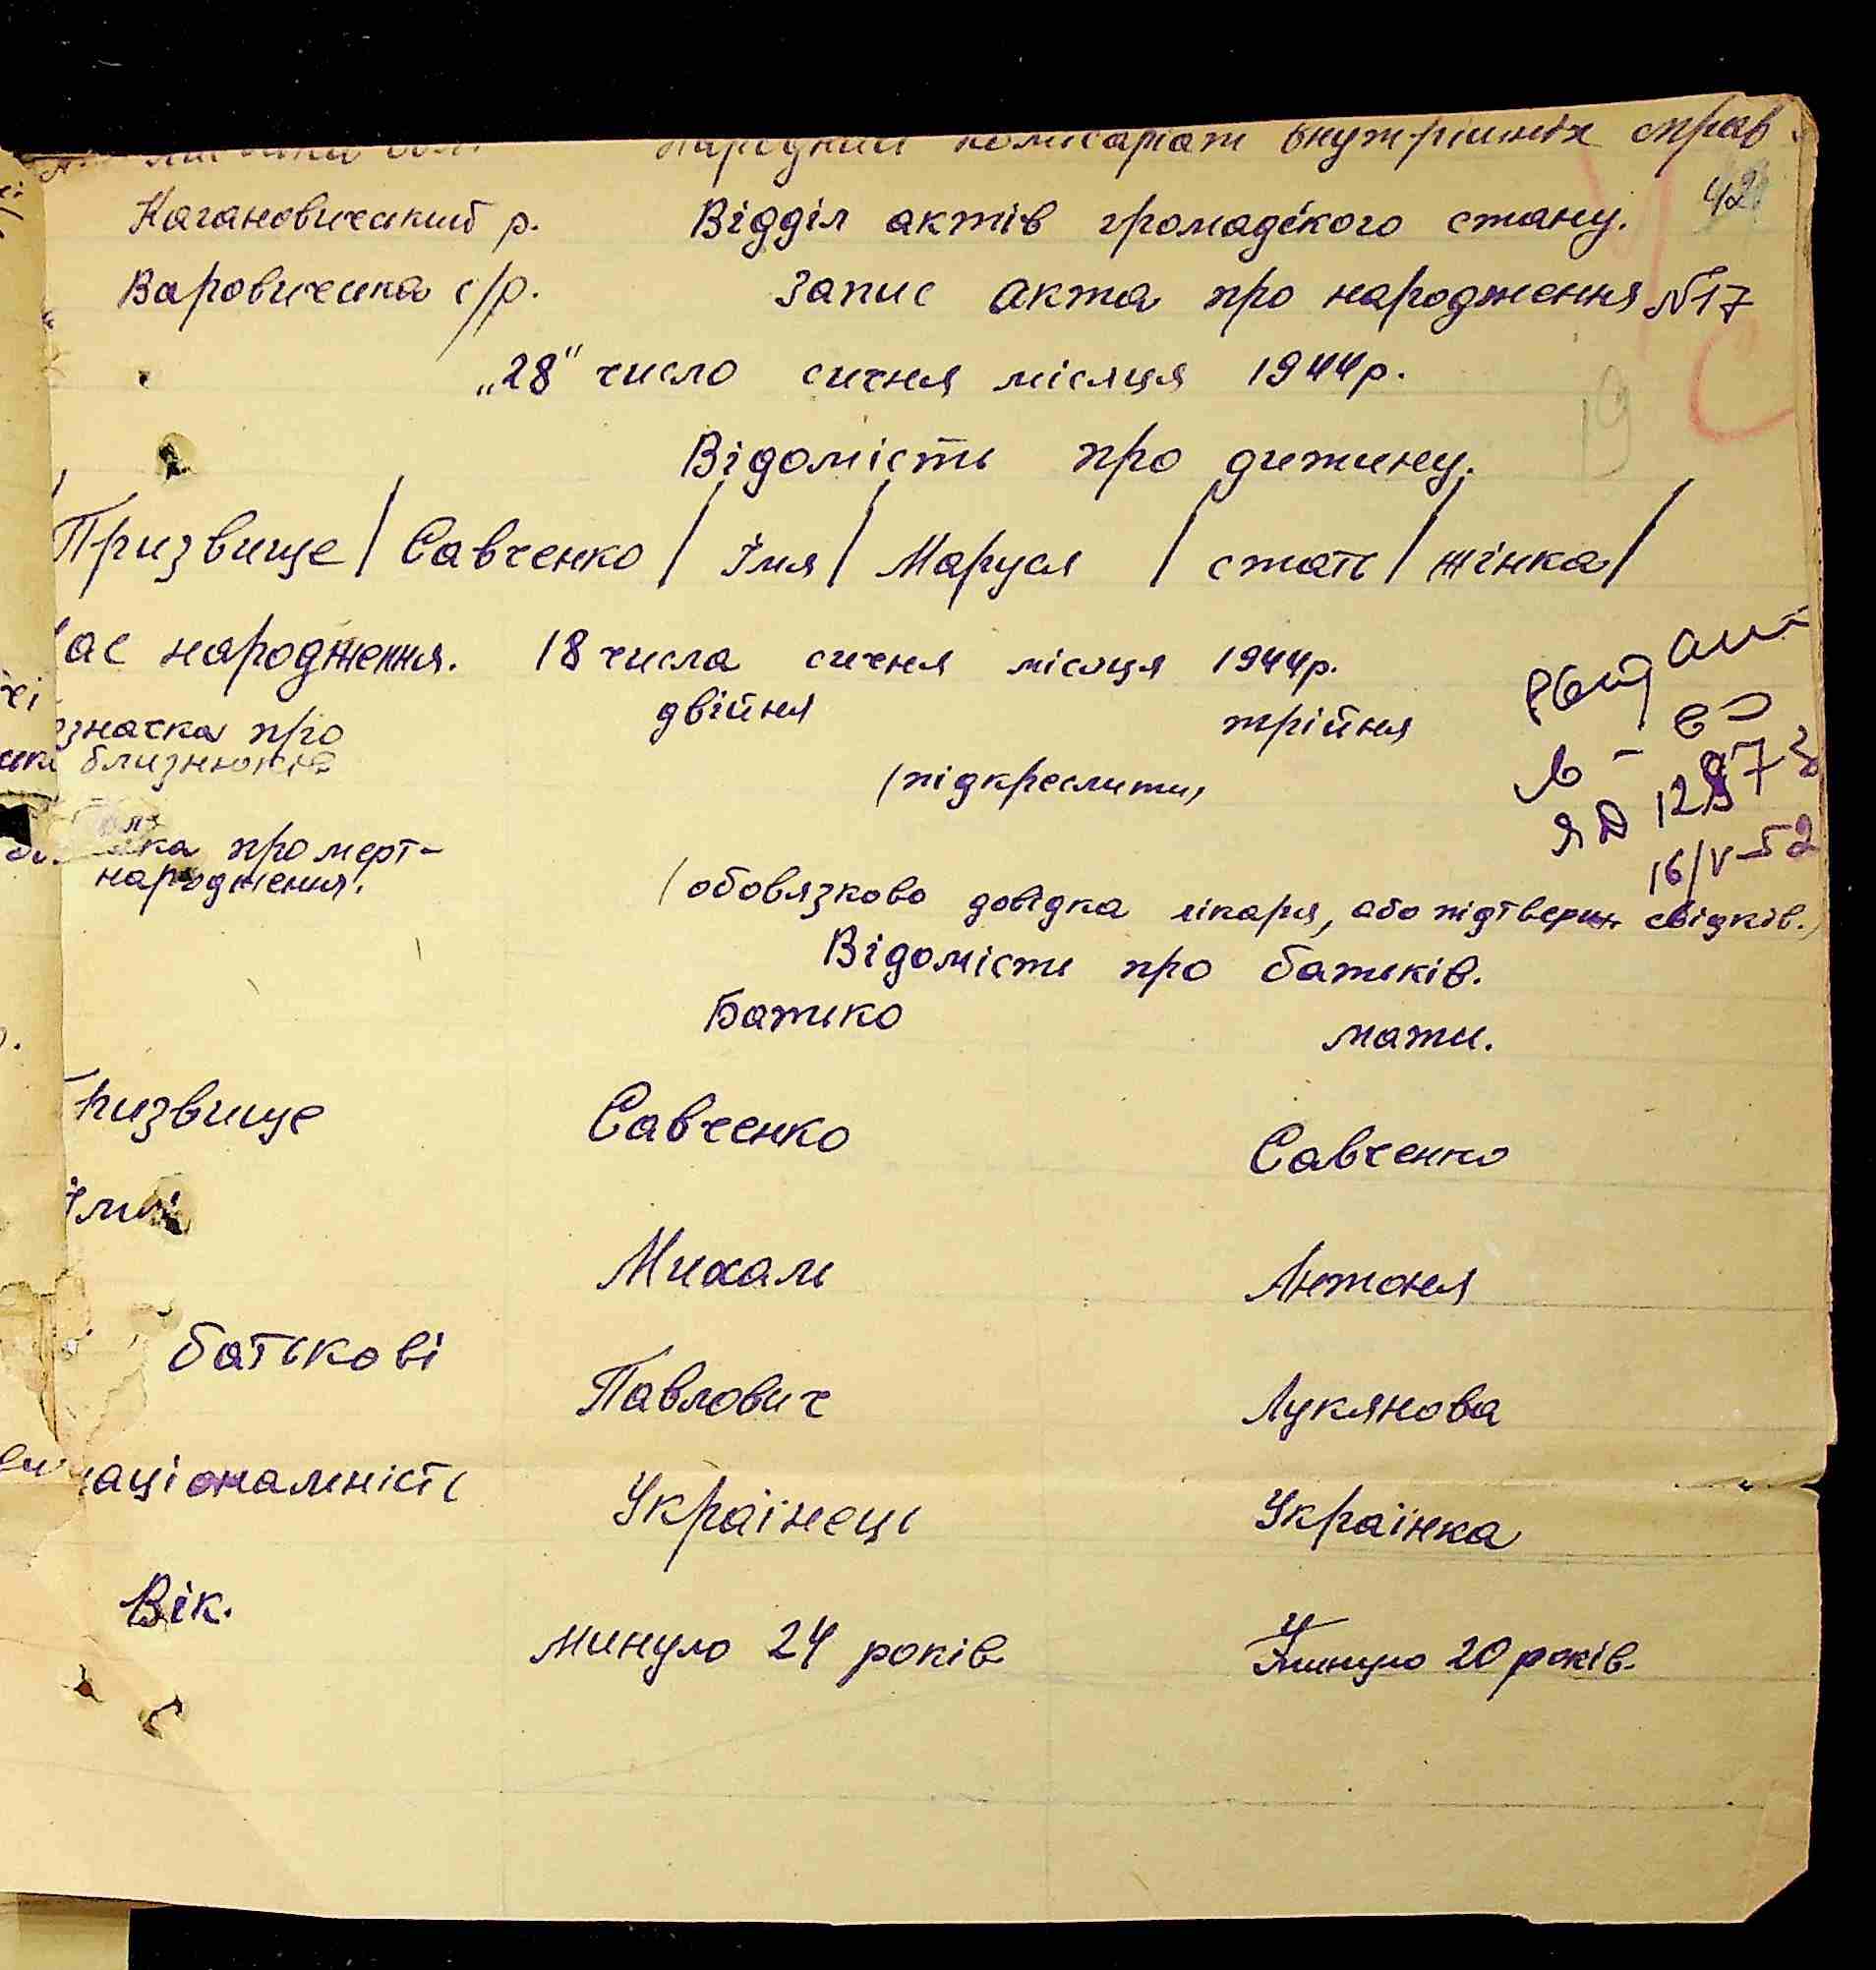 Народний комісаріат внутрішніх справ
42
Кагановичський р. Відділ актів громадського стану.
Варовичська с/р. Запис акта про народження №17
„28" число сичня місяця 1944р.
19
Відомість про дитину.
Призвище / Савченко / Імя / Маруся / стать / жінка /
ас народження. 18 числа сичня місяця 1944р.
двійня трійня
значка про
близнюків
(підкреслити)
ЯД
16/V-52
ка про мерт-
народження.
(обовязково довідка лікаря, або підтверж свідків.)
Відомість про батьків.
Батько мати.
ризвище Савченко Савченко
Імя
Михаль Антоня
батькові
Павлович Лукянова
аціональність
Українець Українка
Вік.
минуло 24 років минуло 20 років.